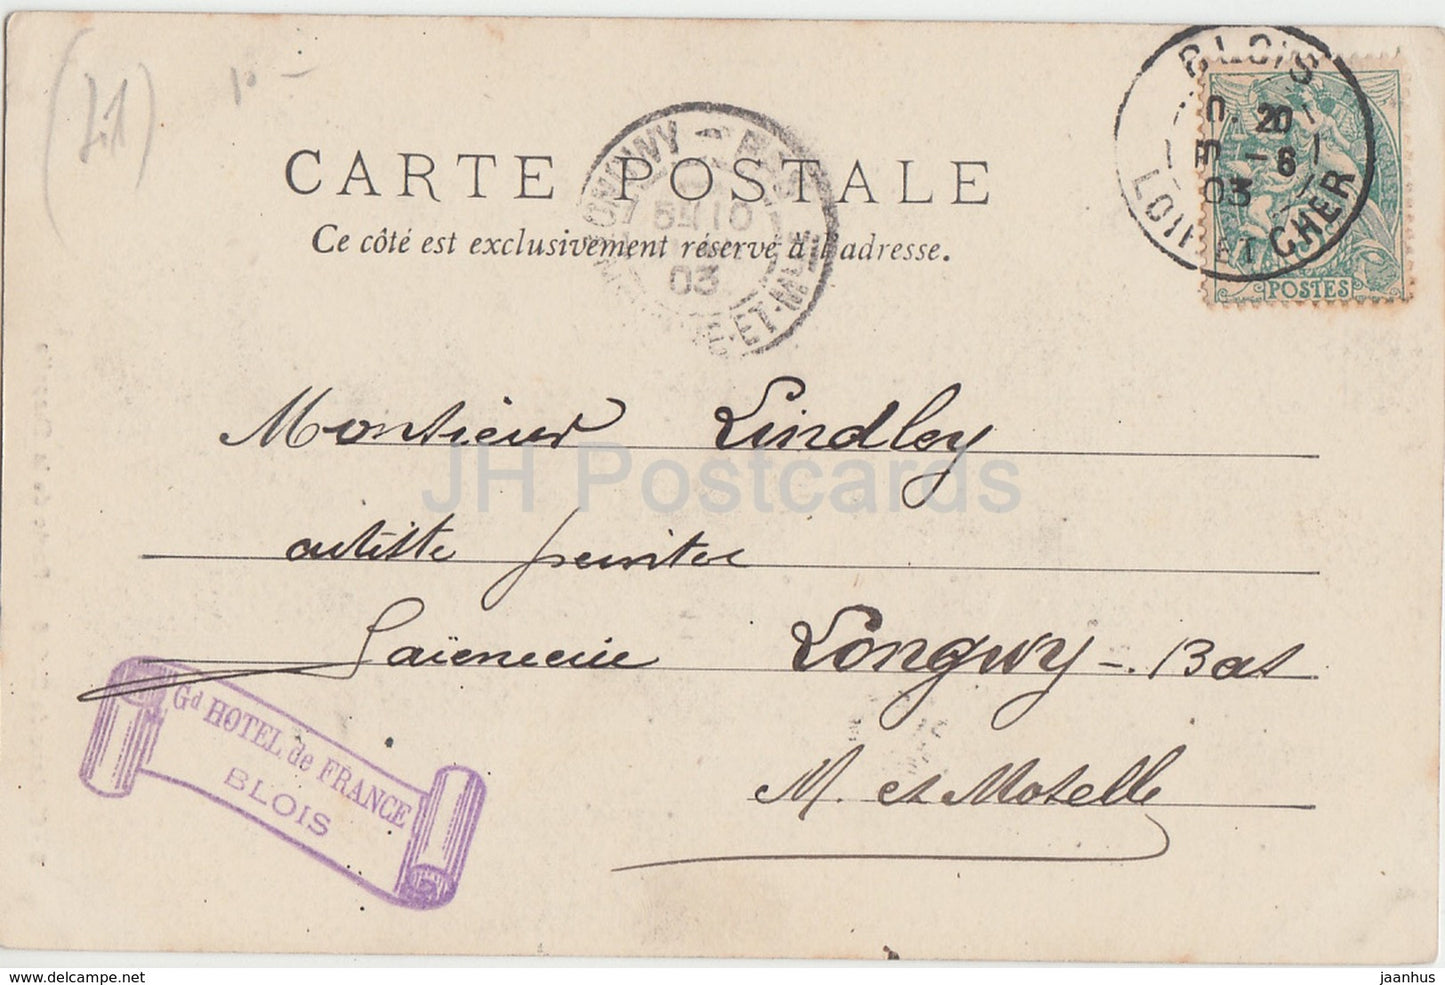 (41)
10 -
BLOIS
20
3 - 6
03
LOIR ET CHER
POSTES
LONGWY - BAS
10
03
MEURTHE-ET-MOSELLE
CARTE POSTALE
Ce côté est exclusivement réservé à l'adresse.
Monsieur Lindley
artiste peintre
Faïencerie Longwy - Bas
M. et Moselle
Gd HOTEL de FRANCE
BLOIS
JH Postcards
www.delcampe.net
jaanhus